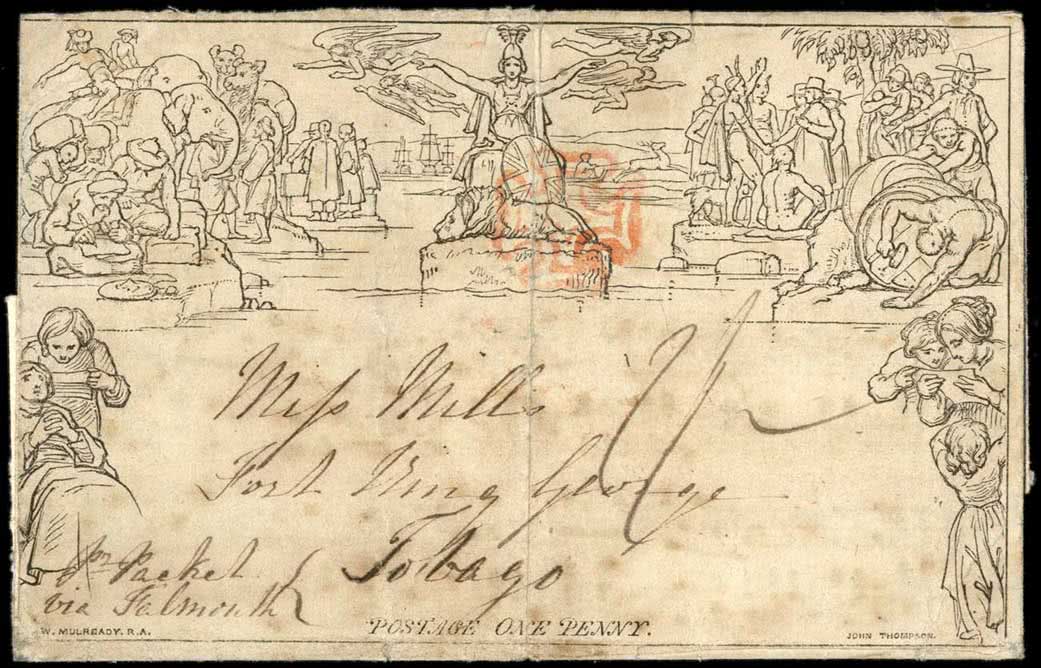 Miss Mills
Fort King George
Tobago
pr Packet
via Falmouth
W. MULREADY. R.A.
POSTAGE ONE PENNY.
JOHN THOMPSON.